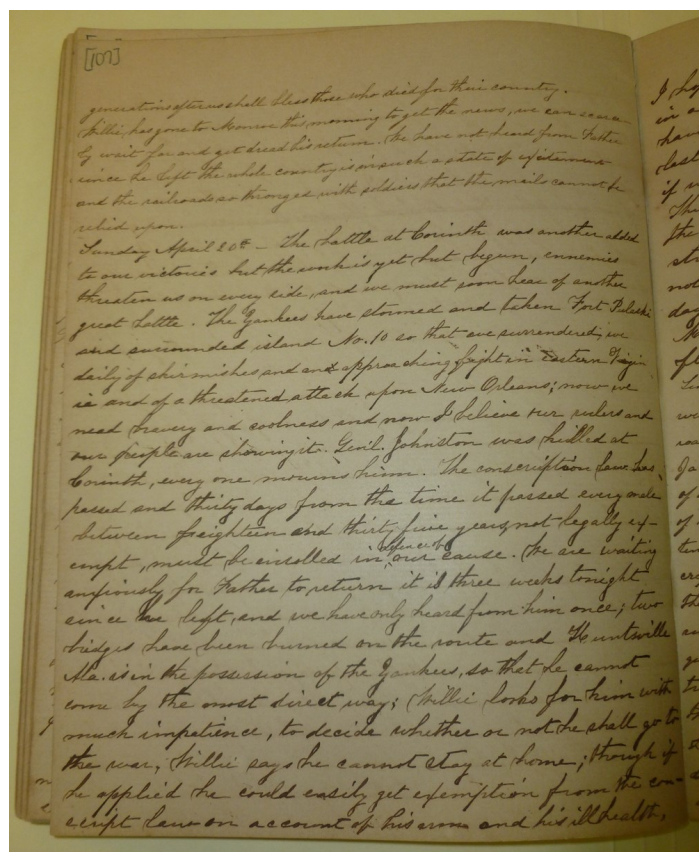 [107]
generations after us shall bless those who died for their country.
Willie has gone to Monroe this morning to get the news, we can scarce
ly wait for and yet dread his return. We have not heard from Father
since he left the whole country is in such a state of excitement
and the railroads so thronged with soldiers that the mails cannot be
relied upon.
Sunday April 20th - The battle at Corinth was another added
to our victories but the work is yet but begun, ennemies
threaten us on every side, and we must soon hear of another
great battle. The Yankees have stormed and taken Fort Pulaski
and surrounded island No. 10 so that we surrendered, we
daily of skirmishes and an approaching fight in Eastern Virgin
ia and of a threatened attack upon New Orleans; now we
need bravery and coolness and now I believe our rulers and
our people are showing it. Genl. Johnston was killed at
Corinth, every one mourns him. The conscription law has
passed and thirty days from the time it passed every male
between eighteen and thirty five years, not legally ex-
empt, must be enrolled in defence of our cause. We are waiting
anxiously for Father to return it is three weeks tonight
since he left, and we have only heard from him once; two
bridges have been burned on the route and Huntsville
Ala. is in the possession of the Yankees, so that he cannot
come by the most direct way; Willie looks for him with
much impatience, to decide whether or not he shall go to
the war, Willie says he cannot stay at home; though if
he applied he could easily get exemption from the con-
script law on account of his arm and his ill health,